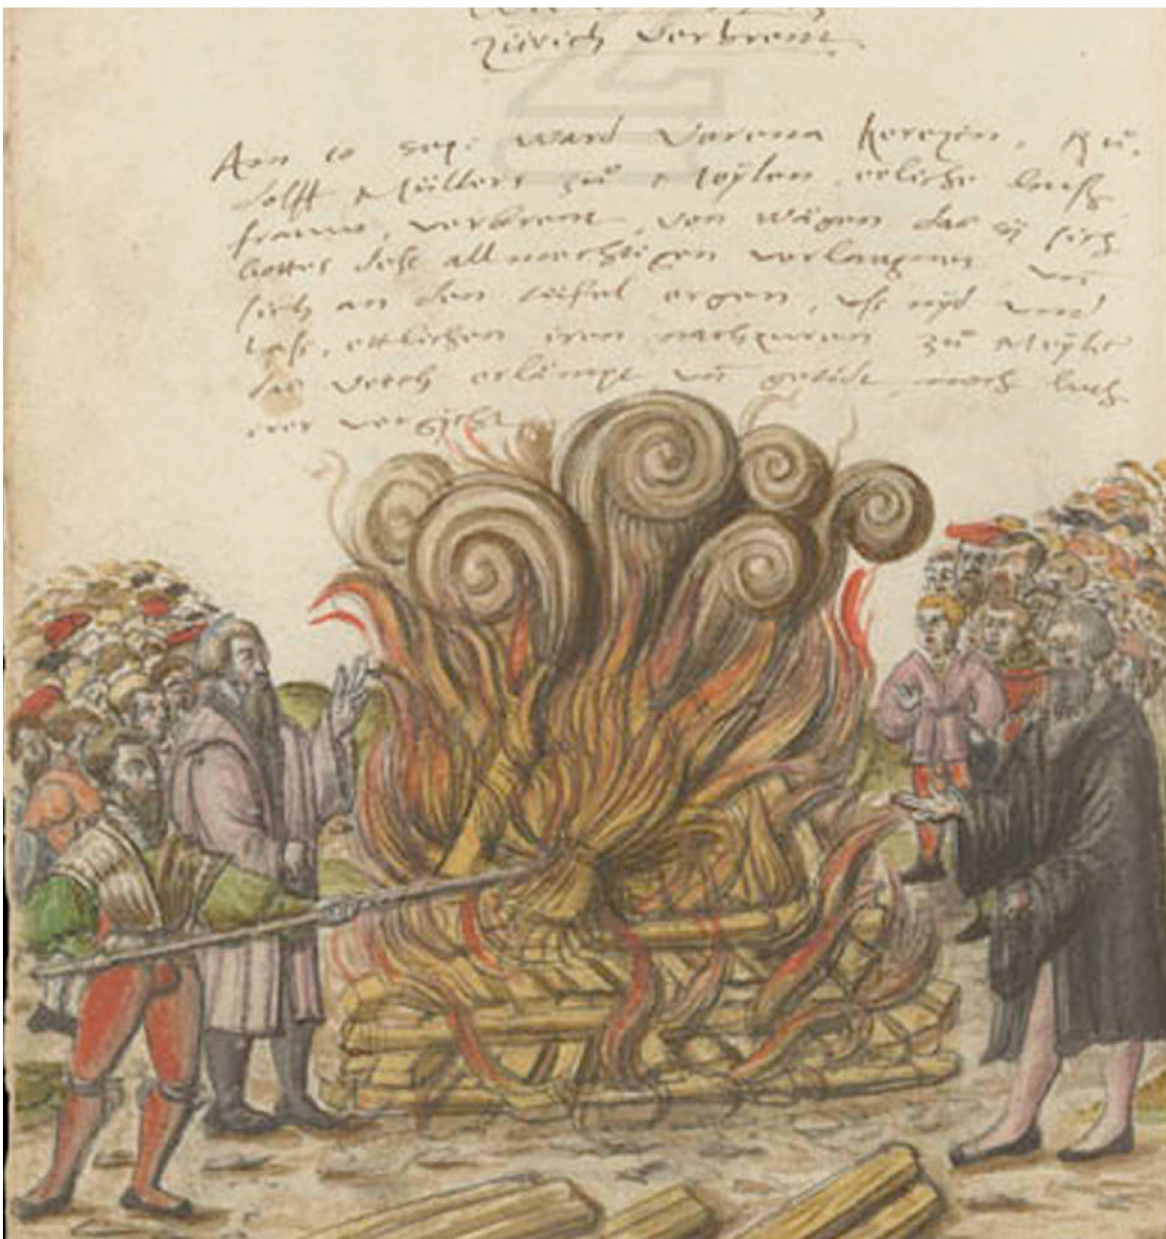 Zürich verbrent
Am 10 sep: ward Verena Kerezin, Ruͦ-
dolff Müllers zuͦ Meÿlen, eeliche huß-
frauw, verbrent, von wägen das sÿ sich
Gottes deß allmechtigen verlaugnen, un̄
sich an den tüfel ergen, uß nÿd und
haß, ettlichen iren nachpuren zuͦ Meÿlen
das vech erlämpt un̄ getödt noch luth
irer vergicht